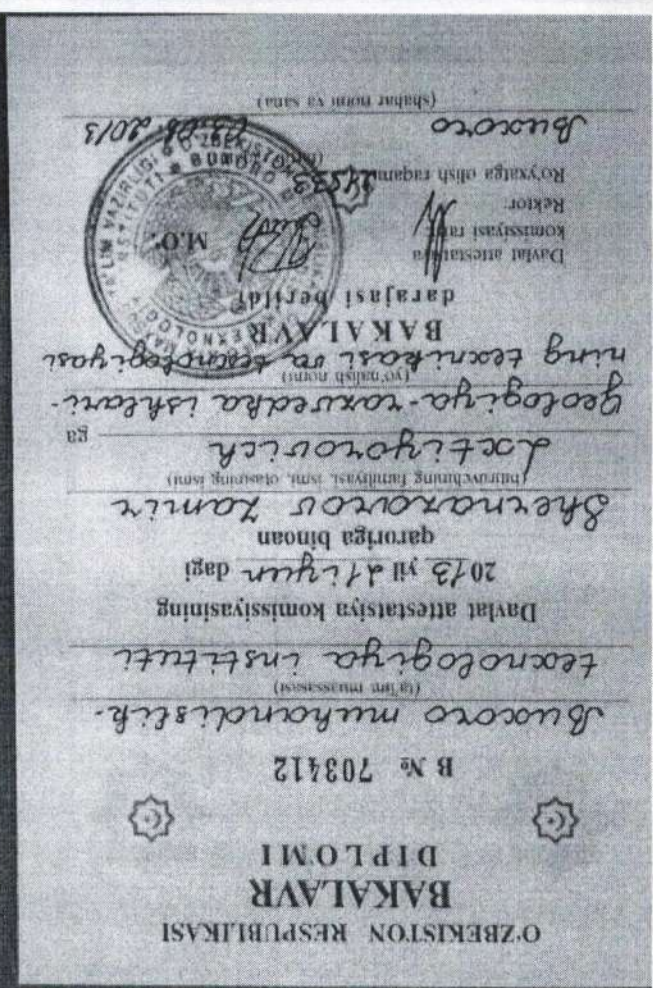 O'ZBEKISTON RESPUBLIKASI
BAKALAVR
DIPLOMI
B № 703412
Buxoro muhandislik-
(ta'lim muassasasi)
texnologiya instituti
Davlat attestatsiya komissiyasining
2013 yil 21 iyun dagi
qaroriga binoan
Shernazarov Zamir
(bitiruvchining familiyasi, ismi, otasining ismi)
Ixtiyorovich ga
Geologiya-razvedka ishlari-
(yo'nalish nomi)
ning texnikasi va texnologiyasi
BAKALAVR
darajasi berildi
Davlat attestatsiya
komissiyasi raisi
Rektor
M.O'.
Ro'yxatga olish raqami
Buxoro 03.08.2013
(shahar nomi va sana)